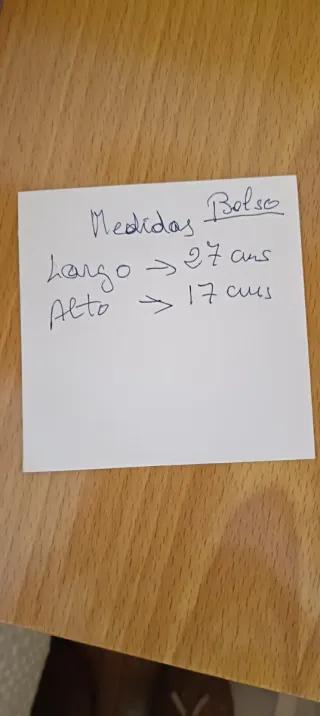 Medidas Bolso
Largo → 27 cms
Alto → 17 cms